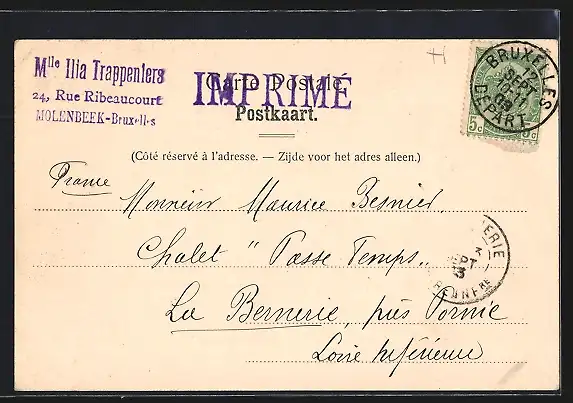 Mlle Ilia Trappeniers
24, Rue Ribeaucourt
MOLENBEEK-Bruxelles
IMPRIMÉ
Carte Postale.
Postkaart.
(Côté réservé à l'adresse. — Zijde voor het adres alleen.)
BRUXELLES
12
SEPT
DEPART
5c 5c
France
Monsieur Maurice Besnier,
Chalet "Passe Temps"
La Bernerie, près Pornic
Loire Inférieure